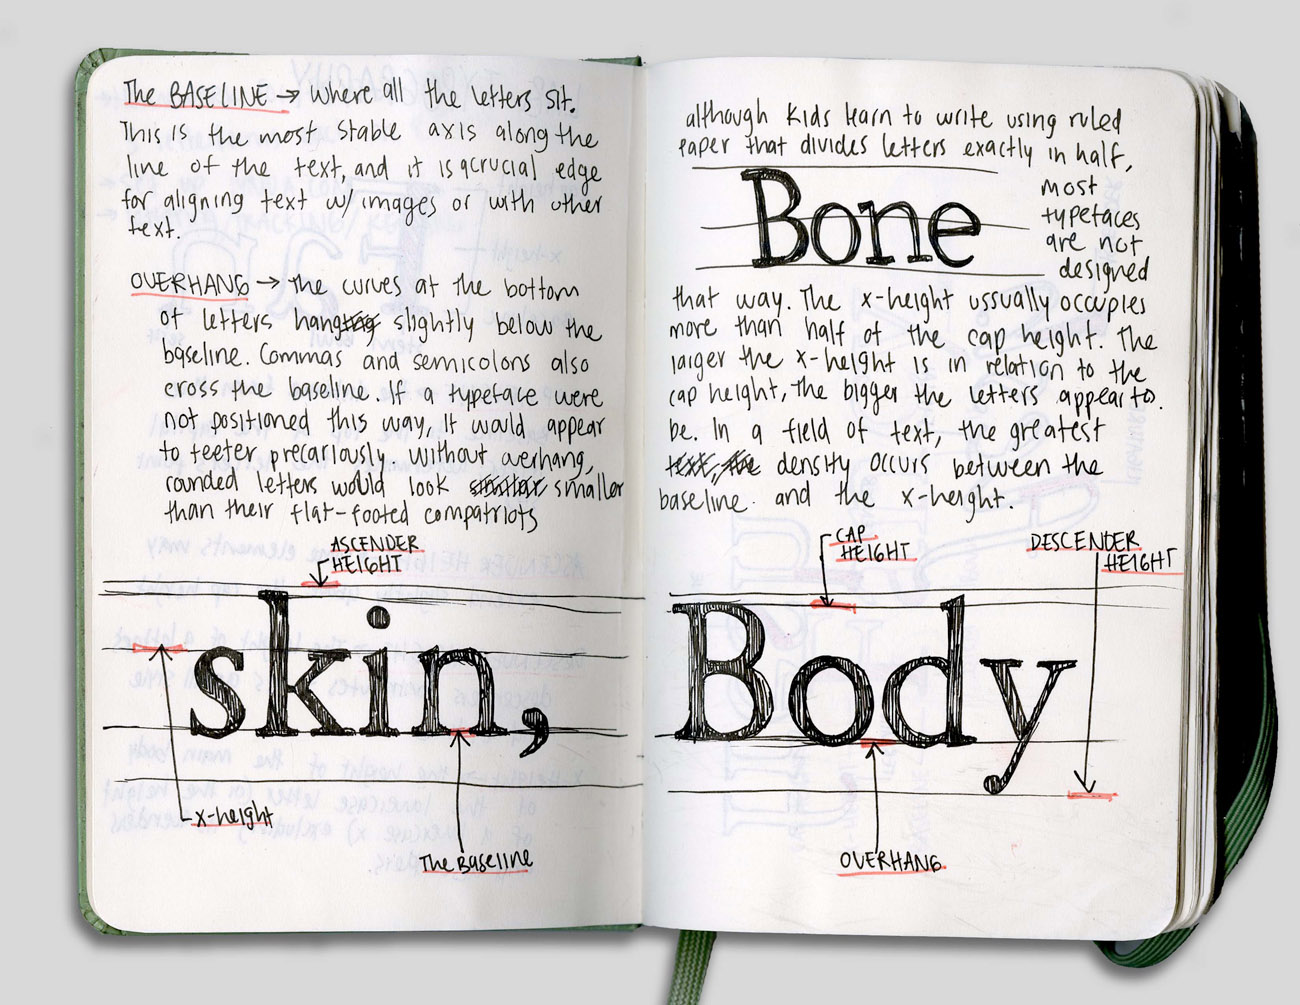 The BASELINE → where all the letters sit.
This is the most stable axis along the
line of the text, and it is a crucial edge
for aligning text w/ images or with other
text.
OVERHANG → the curves at the bottom
of letters hang slightly below the
baseline. Commas and semicolons also
cross the baseline. If a typeface were
not positioned this way, it would appear
to teeter precariously. without overhang,
rounded letters would look smaller
than their flat-footed compatriots
ASCENDER
HEIGHT
skin,
x-height
The Baseline
although kids learn to write using ruled
paper that divides letters exactly in half,
Bone
most
typefaces
are not
designed
that way. The x-height ussually occupies
more than half of the cap height. The
larger the x-height is in relation to the
cap height, the bigger the letters appear to
be. In a field of text, the greatest
density occurs between the
baseline and the x-height.
CAP
HEIGHT
DESCENDER
HEIGHT
Body
OVERHANG